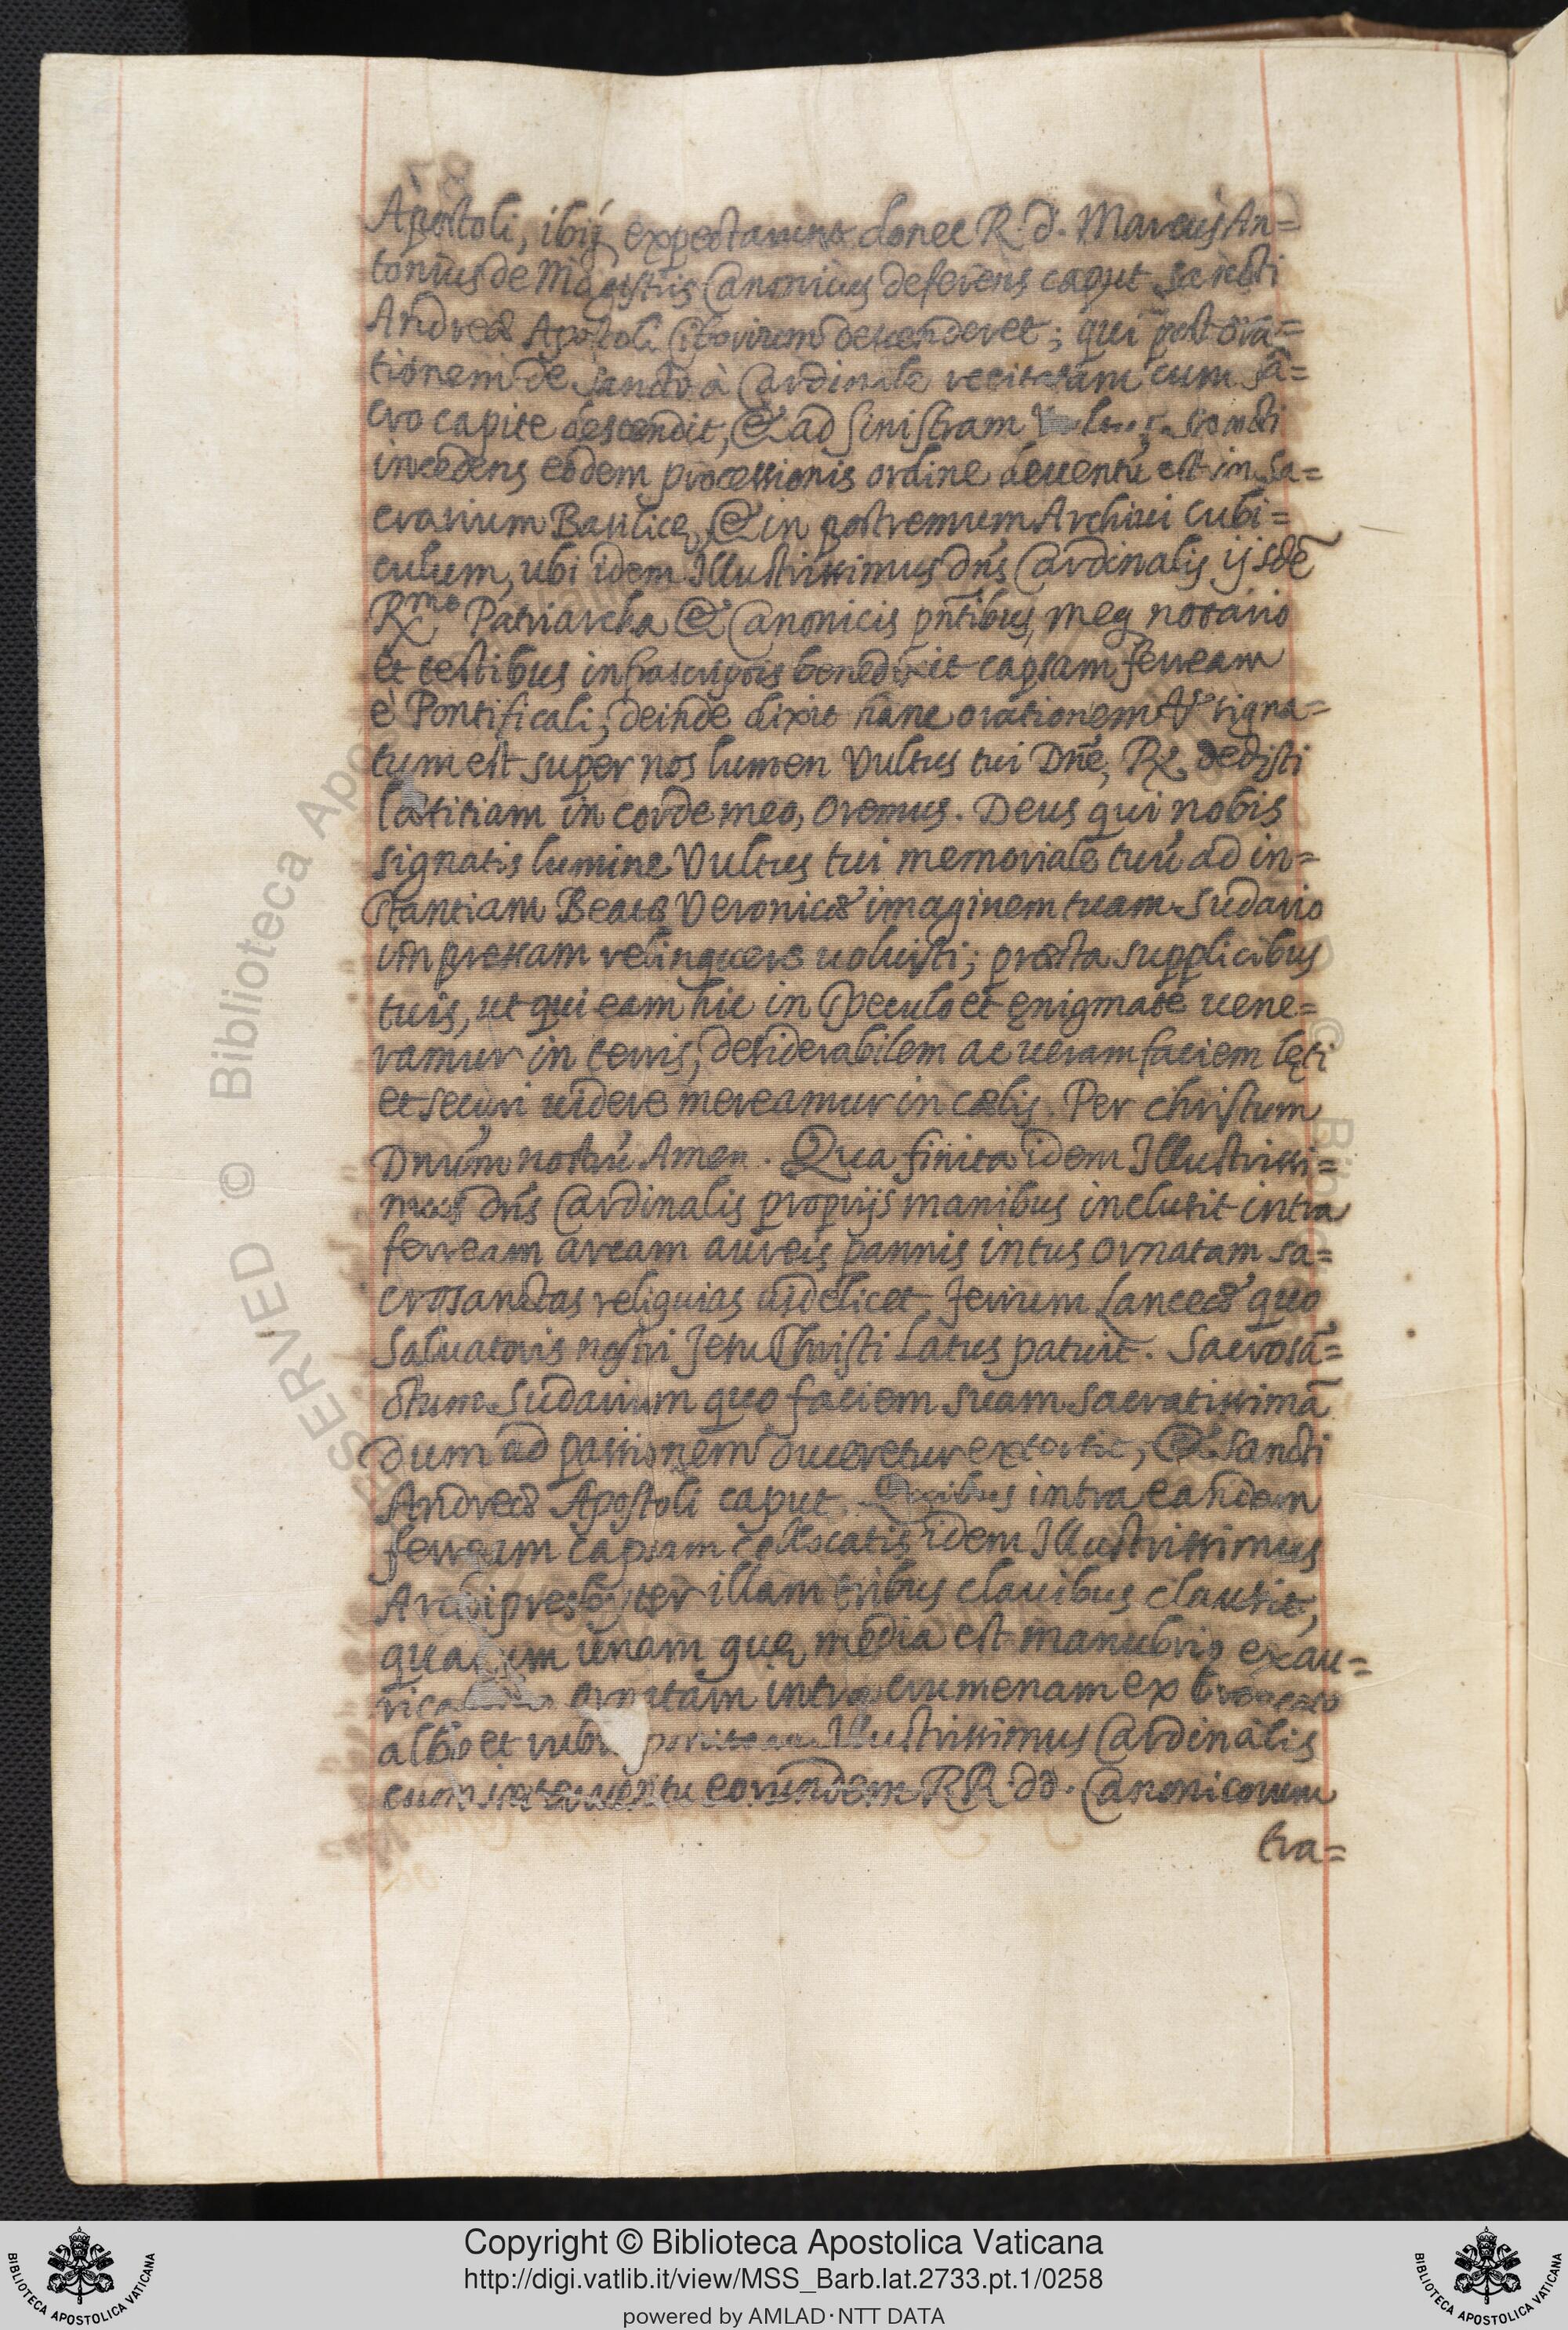 Apostoli, ibiq́, expectarunt donec R. d. Marcus An=
tonius de Magistris Canonicus deferens caput sancti
Andreæ Apostoli Ciborium descenderet; qui post ora=
tionem de sancto à Cardinale recitatam cum sa=
cro capite descendit, & ad sinistram Vultus sancti
incedens eodem processionis ordine deuentũ est in sa=
crarium Basilicę, & in postremum Archiui cubi=
culum, ubi idem Illustrissimus dñs Cardinalis ijsdẽ
Rmo Patriarcha & Canonicis pñtibus, meq notario
et testibus infrascriptis benedixit capsam ferream
è Pontificali, deinde dixit hanc orationem ℣ signa=
tum est super nos lumen Vultus tui Dñe, ℞. dedisti
lætitiam in corde meo, oremus. Deus qui nobis
signatis lumine Vultus tui memoriale tuũ ad in=
stantiam Beatæ Veronicæ imaginem tuam sudario
impressam relinquere uoluisti; præsta supplicibus
tuis, ut qui eam hic in speculo et ęnigmate uene=
ramur in terris, desiderabilem ac ueram faciem lęti
et securi uidere mereamur in cælis. Per christum
Dnũm nostrũ Amen. Qua finita idem Illustrissi=
mus dñs Cardinalis proprijs manibus inclusit intra
ferream arcam aureis pannis intus ornatam sa=
crosanctas reliquias uidelicet, ferrum Lanceæ quo
Saluatoris nostri Jesu Christi Latus patuit. Sacrosã=
ctum Sudarium quo faciem suam sacratissimã
dum ad passionem duceretur extersit, & Sancti
Andreæ Apostoli caput. Quibus intra eandem
ferream capsam collocatis idem Illustrissimus
Archipresbyter illam tribus clauibus clausit,
quarum unam quę media est manubrio ex au=
ornatam intra crumenam ex
albo et Illustrissimus Cardinalis
cum interuentu eorundem RR. dd. Canonicorum
tra=
Copyright © Biblioteca Apostolica Vaticana
http://digi.vatlib.it/view/MSS_Barb.lat.2733.pt.1/0258
powered by AMLAD·NTT DATA